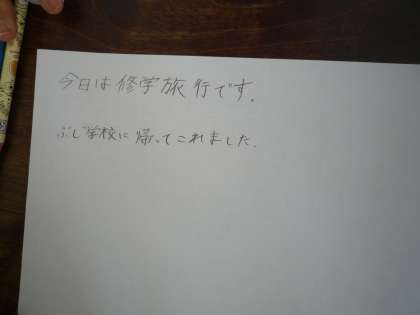 今日は修学旅行です.
ぶじ学校に帰ってこれました.